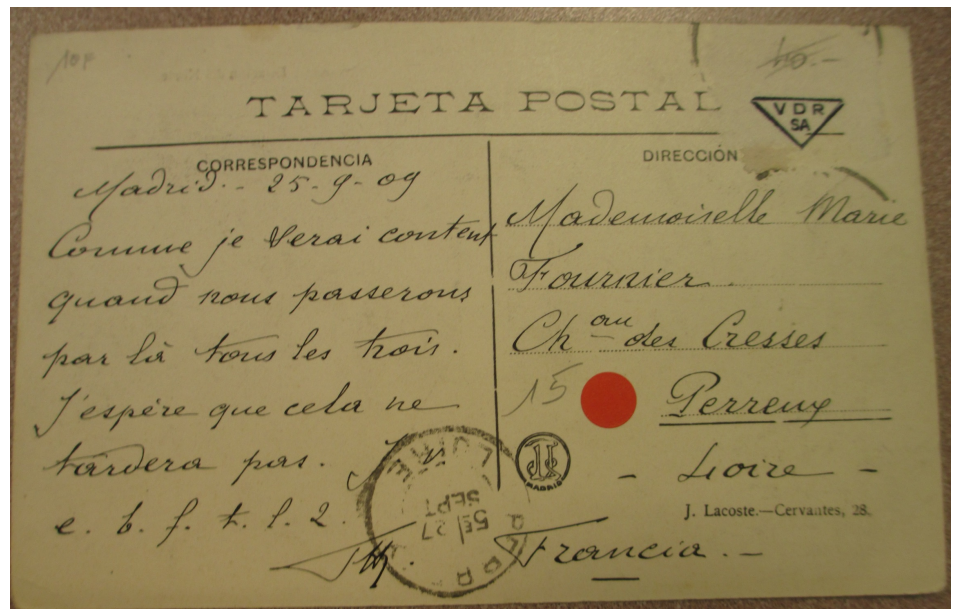 10F
TARJETA POSTAL
VDR
SA
CORRESPONDENCIA
Madrid.- 25-9-09
Comme je serai content
quand nous passerons
par là tous les trois.
J'espère que cela ne
tardera pas.
e. b. f. t. l. 2.
DIRECCIÓN
Mademoiselle Marie
Fournier
Ch^au des Cresses
15
Perreux
- Loire -
MADRID
J. Lacoste.—Cervantes, 28.
Francia.-
LOIRE
5E/27
SEPT